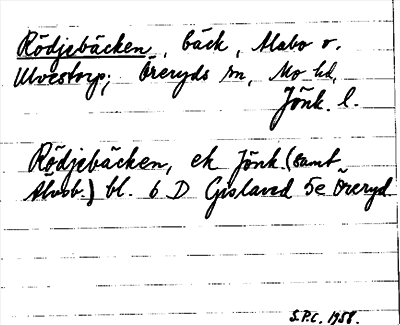 Rödjebäcken, bäck, Alabo o.
Ulvestorp; Öreryds sn, Mo hd,
Jönk. l.
Rödjebäcken, ek Jönk. (samt
Älvsb.) bl. 6 D Gislaved 5e Öreryd
S.P.C. 1958.